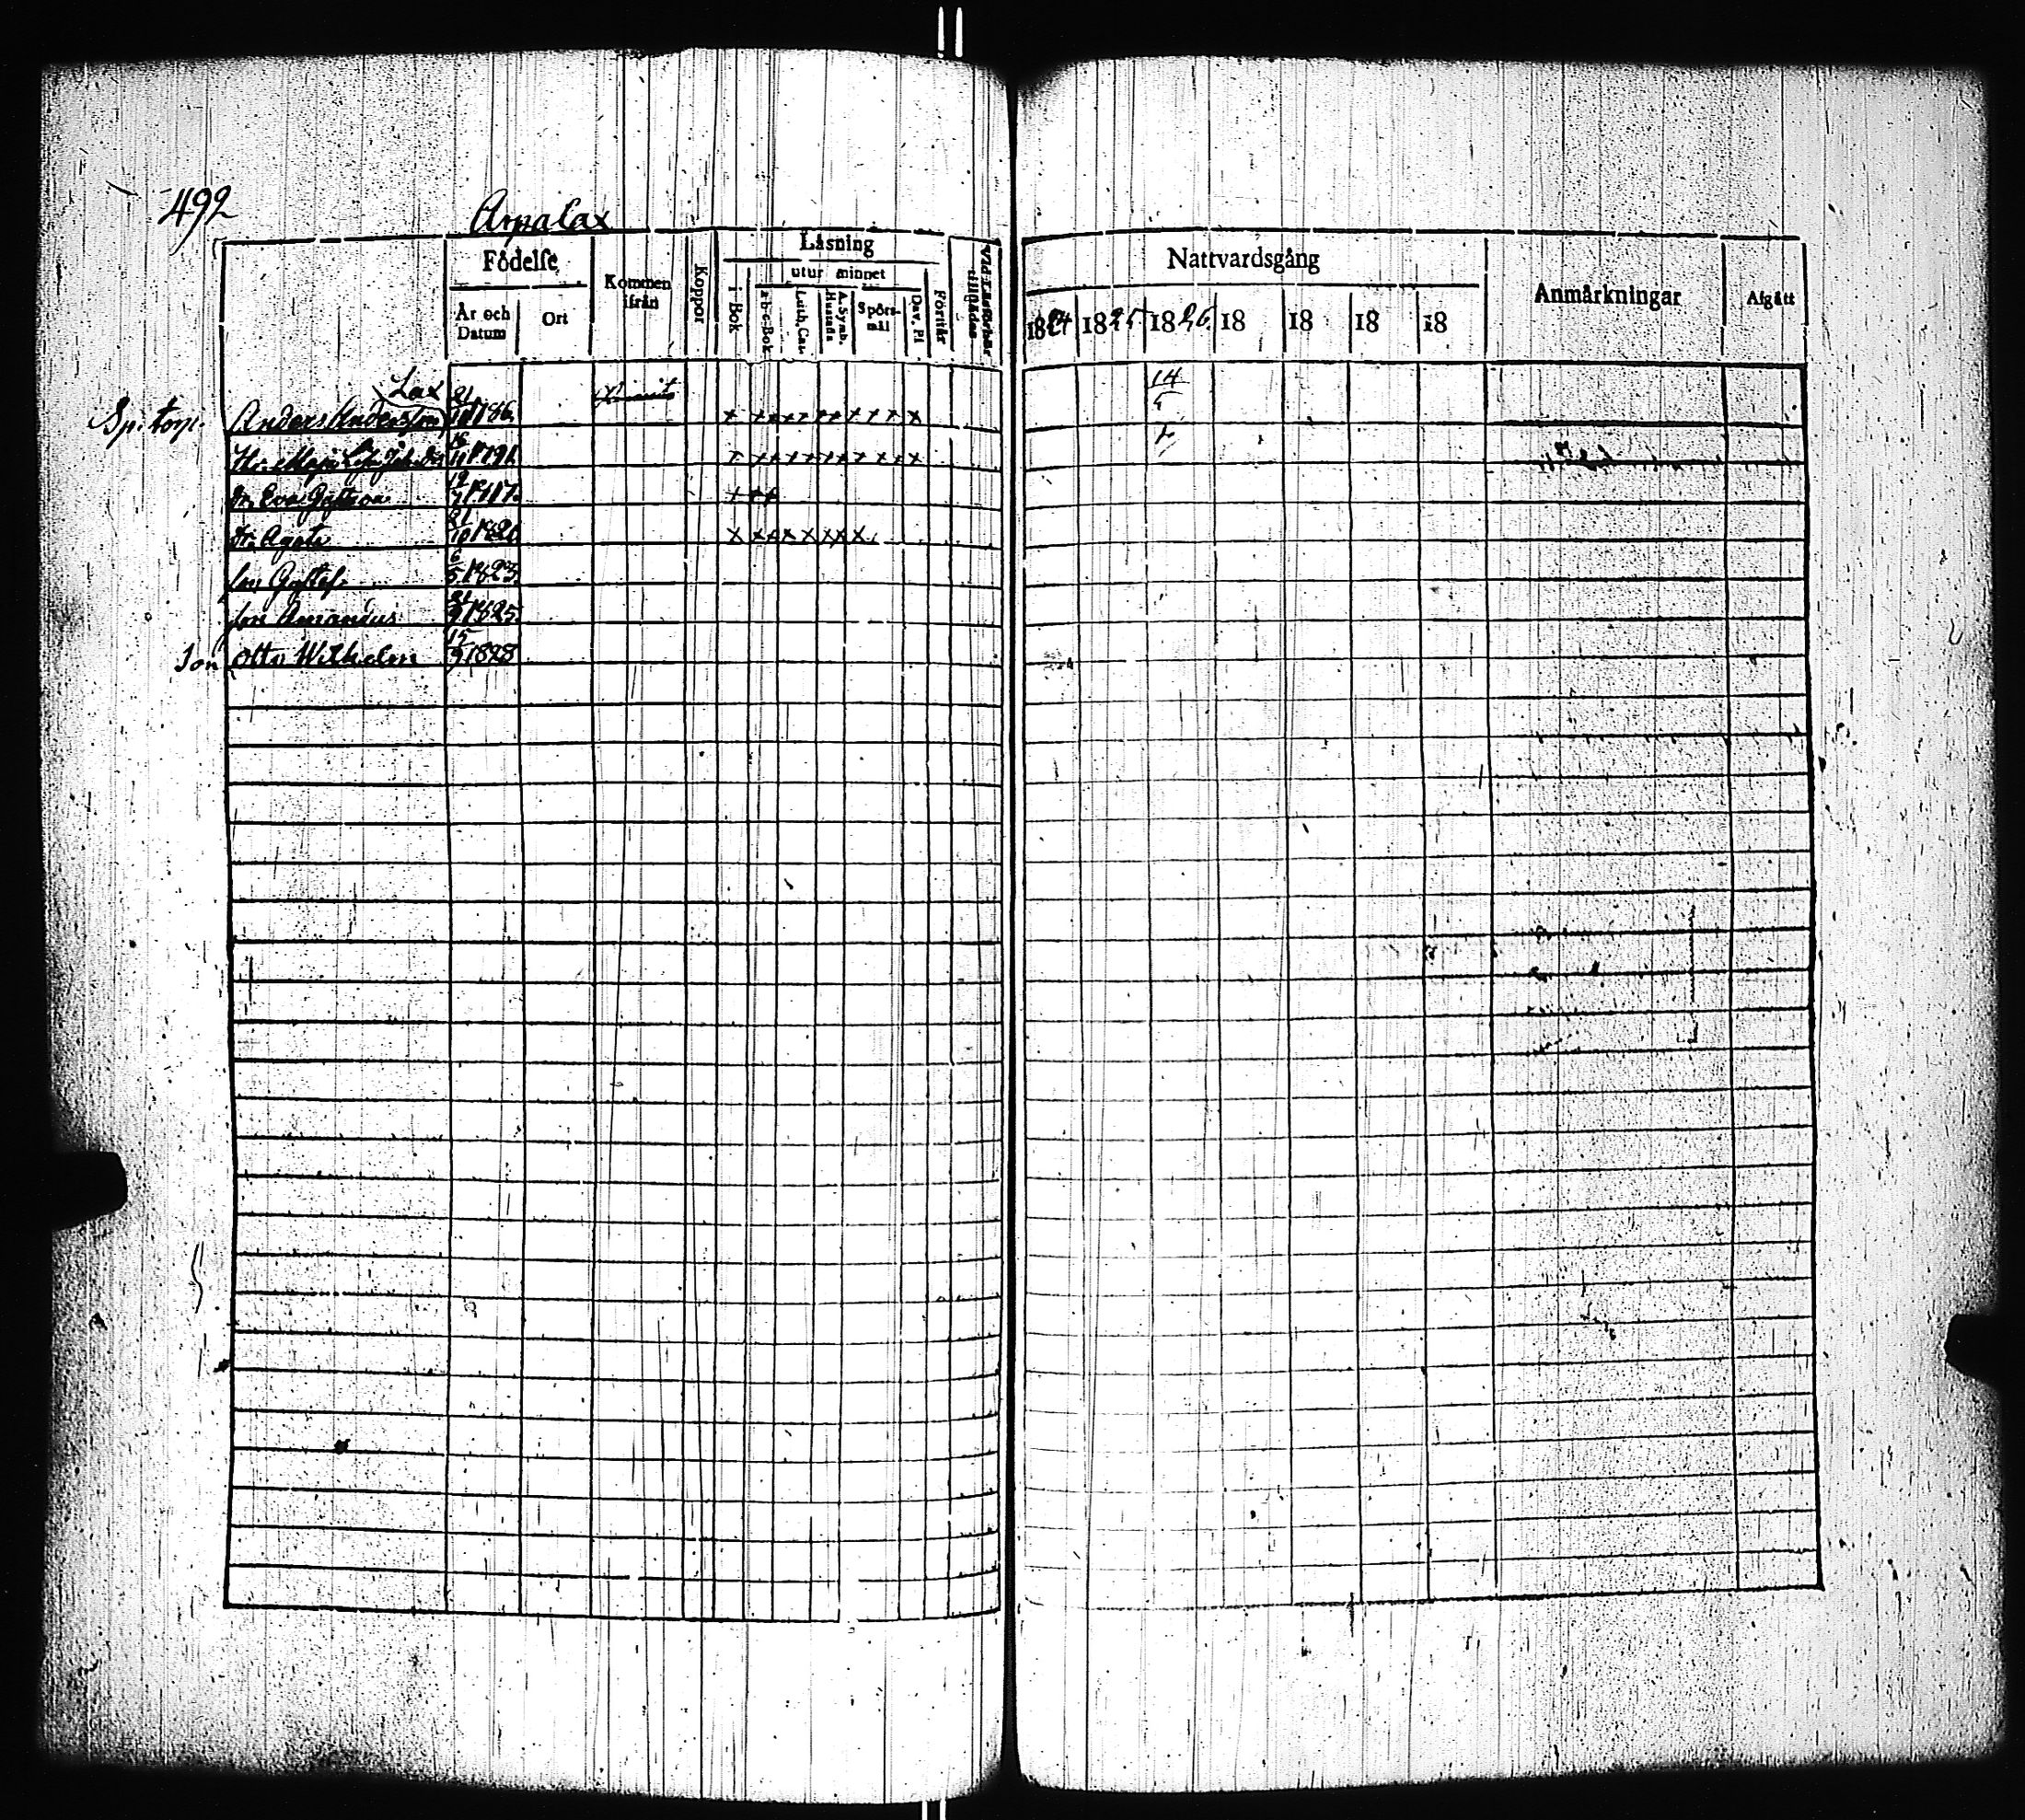 492
Arpalax
Födelse
År och Datum
Ort
Kommen ifrån
Koppor
Läsning
i Bok
utur minnet
a-b-c-Bok
Luth. Cat.
A. Symb. Hustafla
Spörsmål
Dav. Ps
Förstår
Nattvardsgång
1824 1825 1826 18 18 18 18
Anmärkningar
Afgått
Lax
Sp. torp. Anders Andersson 21/10 1786 14/5
Hu. Maja 1791
Dr. Eva 1817
Dr. Agata 21/10 1820
Son Gustaf 6/5 1823
Son Amandus 21/9 1825
Son Otto Wilhelm 15/9 1828